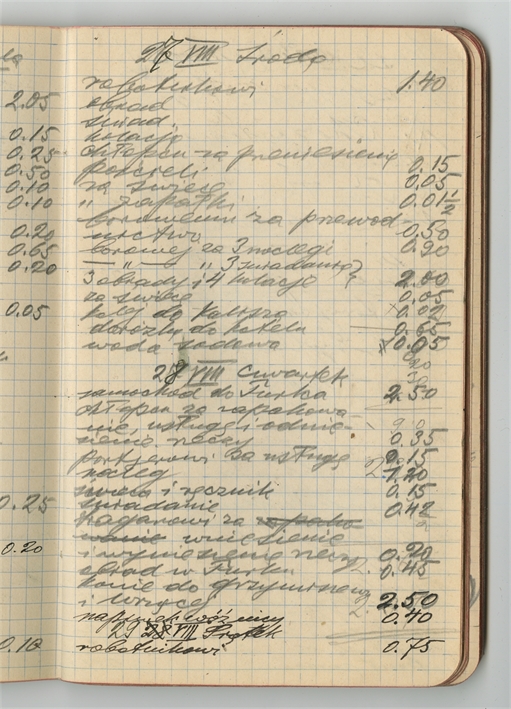 27 VIII Środa
robotnikowi 1.40
obiad
śniad.
kolacja
chłopcu za przeniesienie
pościeli 0.15
za świecę 0.05
" zapałki 0.01½
za przewod-
nictwo 0.50
za 3 noclegi 0.90
— " — " 3 śniadania }
3 obiady i 4 kolacje } 2.00
za świecę 0.05
kolej do 0.02
dorożka do hotelu 0.65
woda sodowa 0.05
28 VIII Czwartek
samochód do Turka 2.50
chłopcu za zapakowa-
nie, usługę i odnie-
sienie rzeczy 0.35
portjerowi za usługę 0.15
nocleg 1.20
świeca i ręcznik 0.15
śniadanie 0.42
za
wniesienie
i wyniesienie rzeczy 0.20
obiad w Turku 0.45
konie do
i 2.50
napiwek woźnicy 0.40
29 VIII Piątek
robotnikowi 0.75
2.05
0.15
0.25
0.50
0.10
0.10
0.20
0.65
0.20
0.05
0.25
0.20
0.10